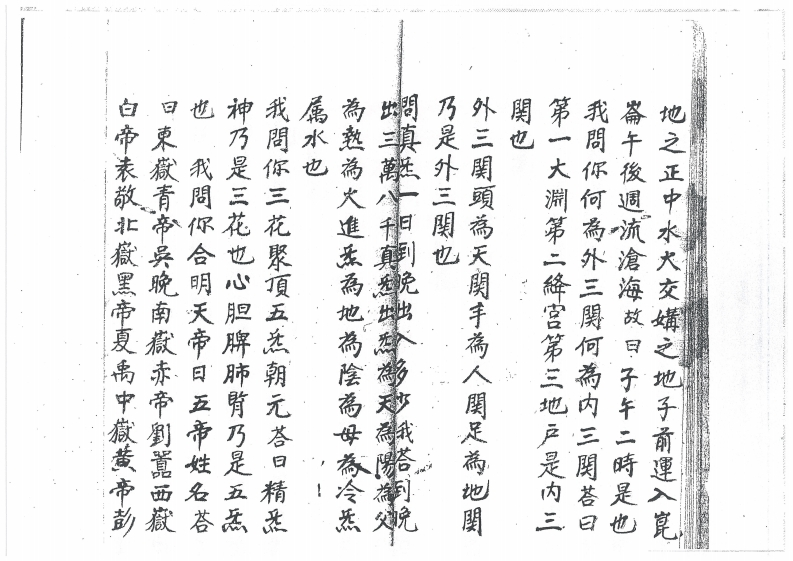 地之正中水火交媾之地子前運入崑
崙午後週流滄海故曰子午二時是也
我問你何為外三関何為内三関荅曰
第一大淵第二絳宮第三地戸是内三
関也
外三関頭為天関手為人関足為地関
乃是外三関也
問真炁一日到晚出入多少我荅到晚
出三萬八千真炁出炁為天為陽為父
為熱為火進炁為地為陰為母為冷炁
属水也
我問你三花聚頂五炁朝元荅曰精炁
神乃是三花也心胆脾肺腎乃是五炁
也　我問你合明天帝日五帝姓名荅
曰東嶽青帝吳晚南嶽赤帝劉嚚西嶽
白帝袁敬北嶽黑帝夏禹中嶽黄帝彭